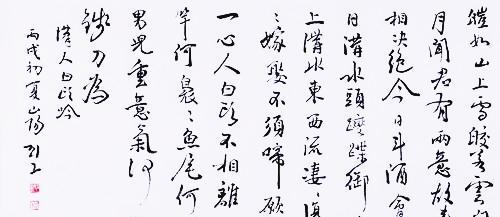 皚如山上雪皎若雲
月聞君有兩意故
相決絕今日斗酒會
日溝水頭躞蹀御
上溝水東西流淒〻復
〻嫁娶不須啼願
一心人白頭不相離
竿何裊〻魚尾何
男兒重意氣何
錢刀為
漢人白頭吟
丙戌初夏山陽